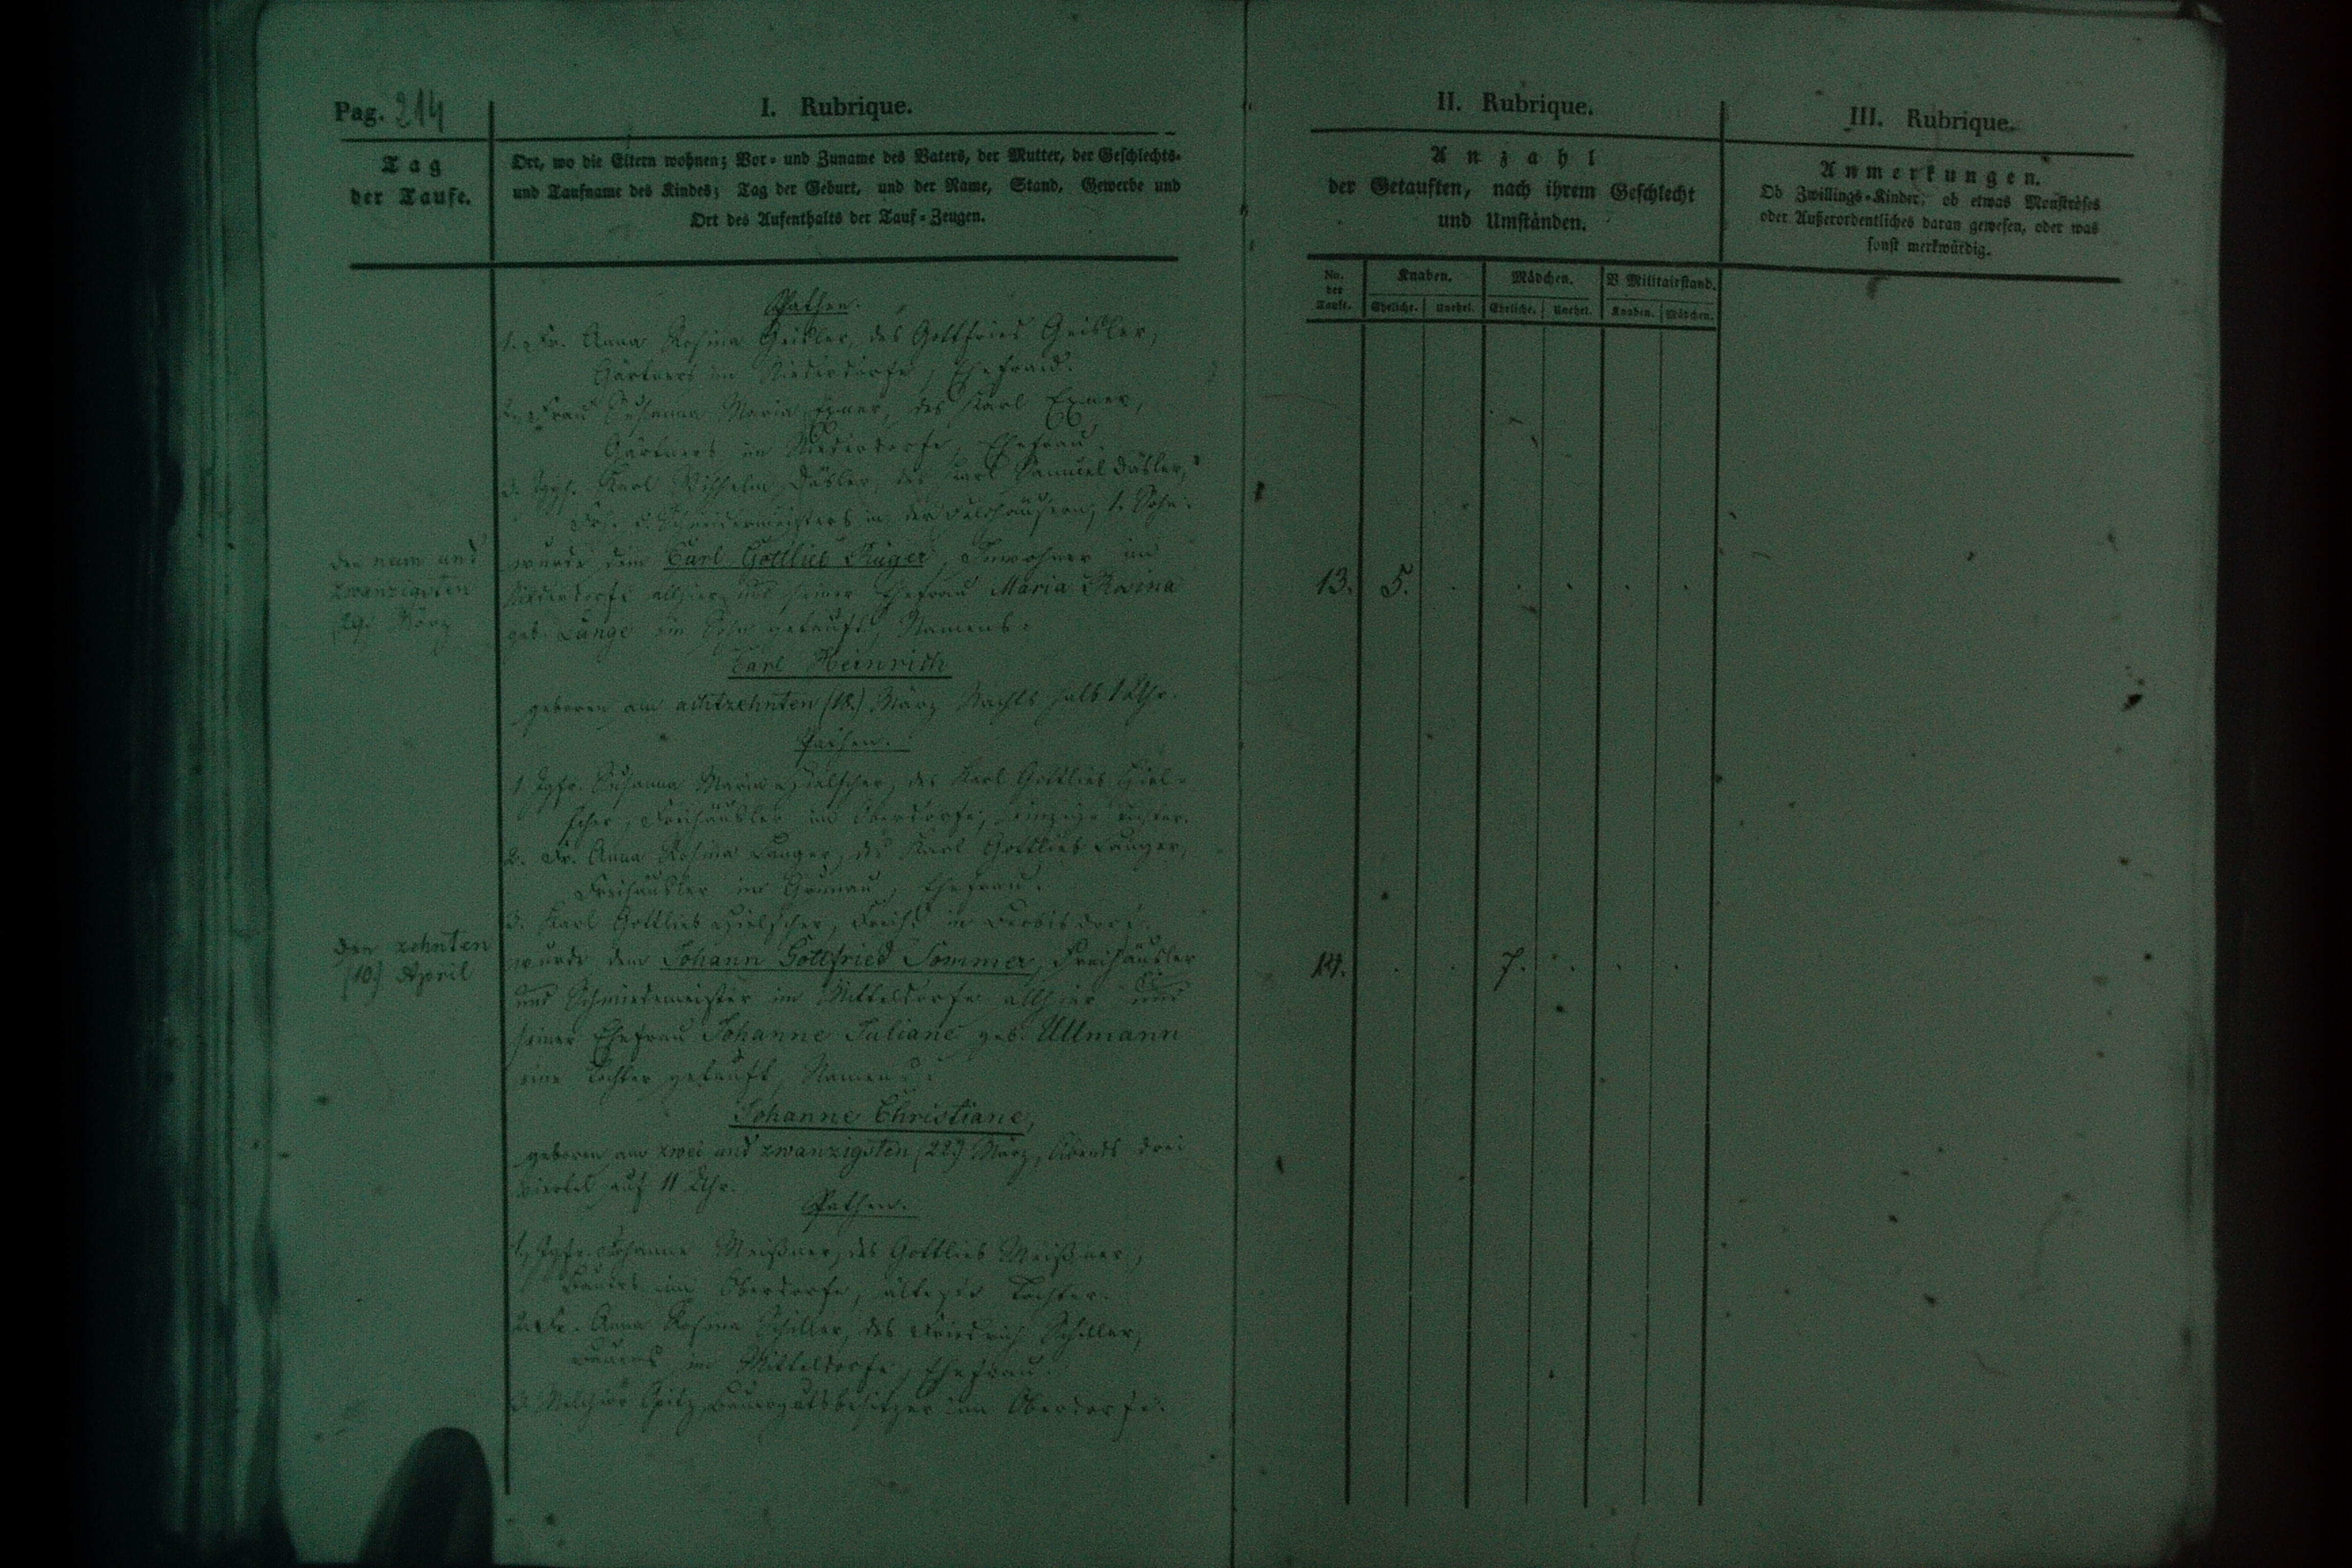 Pag. 214
I. Rubrique.
Tag
der Taufe.
Ort, wo die Eltern wohnen; Vor- und Zuname des Vaters, der Mutter, der Geschlechts-
und Taufname des Kindes; Tag der Geburt, und der Name, Stand, Gewerbe und
Ort des Aufenthalts der Tauf-Zeugen.
Pathen.
1. Fr. Anna Rosina Geisler, des Gottfried Geisler,
Gärtners im Niederdorfe, Ehefrau.
2. Frau Susanna Maria Exner, des Karl Exner,
Gärtners im Niederdorfe, Ehefrau.
3. Jggs. Karl Wilhelm Däsler, des Karl Samuel Däsler,
Schneidermeisters in den Feldhäusern, 1. Sohn.
den neun und
zwanzigsten
(29.) März
wurde dem Carl Gottlieb Rüger, Inwohner im
Niederdorfe allhier und seiner Ehefrau Maria Rosina
geb. Lange ein Sohn getauft, Namens:
Carl Heinrich
geboren am achtzehnten (18.) März Nachts halb 1 Uhr.
Pathen.
1. Jgfr. Susanna Maria Hielscher, des Karl Gottlieb Hiel-
scher, Freihäusler im Oberdorfe, einzige Tochter.
2. Fr. Anna Rosina Langer, des Karl Gottlieb Langer,
Freihäusler in Grunau, Ehefrau.
3. Karl Gottlieb Hielscher, Freih. in Berbisdorf.
den zehnten
(10.) April
wurde dem Johann Gottfried Sommer, Freihäusler
und Schmiedemeister im Mitteldorfe allhier und
seiner Ehefrau Johanne Juliane geb. Ullmann
eine Tochter getauft, Namens:
Johanne Christiane,
geboren am zwei und zwanzigsten (22.) März, Abends drei
viertel auf 11 Uhr.
Pathen.
1. Jgfr. Johanne Meißner, des Gottlieb Meißner,
Bauers im Oberdorfe, älteste Tochter.
2. Fr. Anna Rosina Schiller, des Friedrich Schiller,
Bauers im Mitteldorfe, Ehefrau.
3. Melchior Opitz, Bauergutsbesitzer im Oberdorfe.
II. Rubrique.
Anzahl
der Getauften, nach ihrem Geschlecht
und Umständen.
No. der Taufe.
Knaben. Mädchen. B Militairstand.
Eheliche. Unehel. Eheliche. Unehel. Knaben. Mädchen.
13. 5. . . . . .
14. . . 7. . . .
III. Rubrique.
Anmerkungen.
Ob Zwillings-Kinder, ob etwas Monströses
oder Außerordentliches daran gewesen, oder was
sonst merkwürdig.